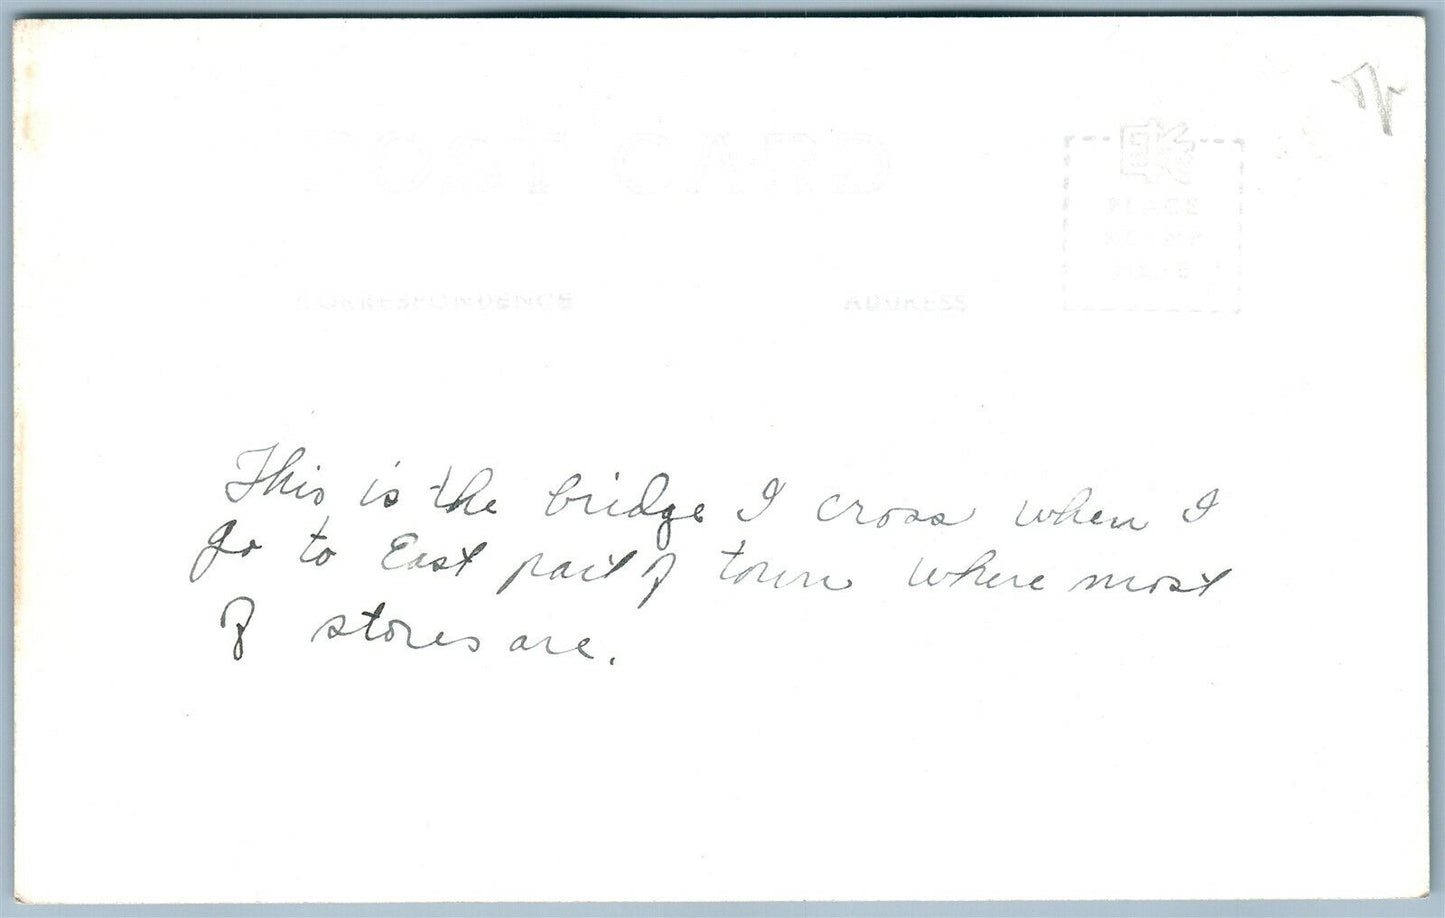 POST CARD
PLACE
STAMP
HERE
CORRESPONDENCE
ADDRESS
This is the bridge I cross when I
go to East part of town where most
of stores are.